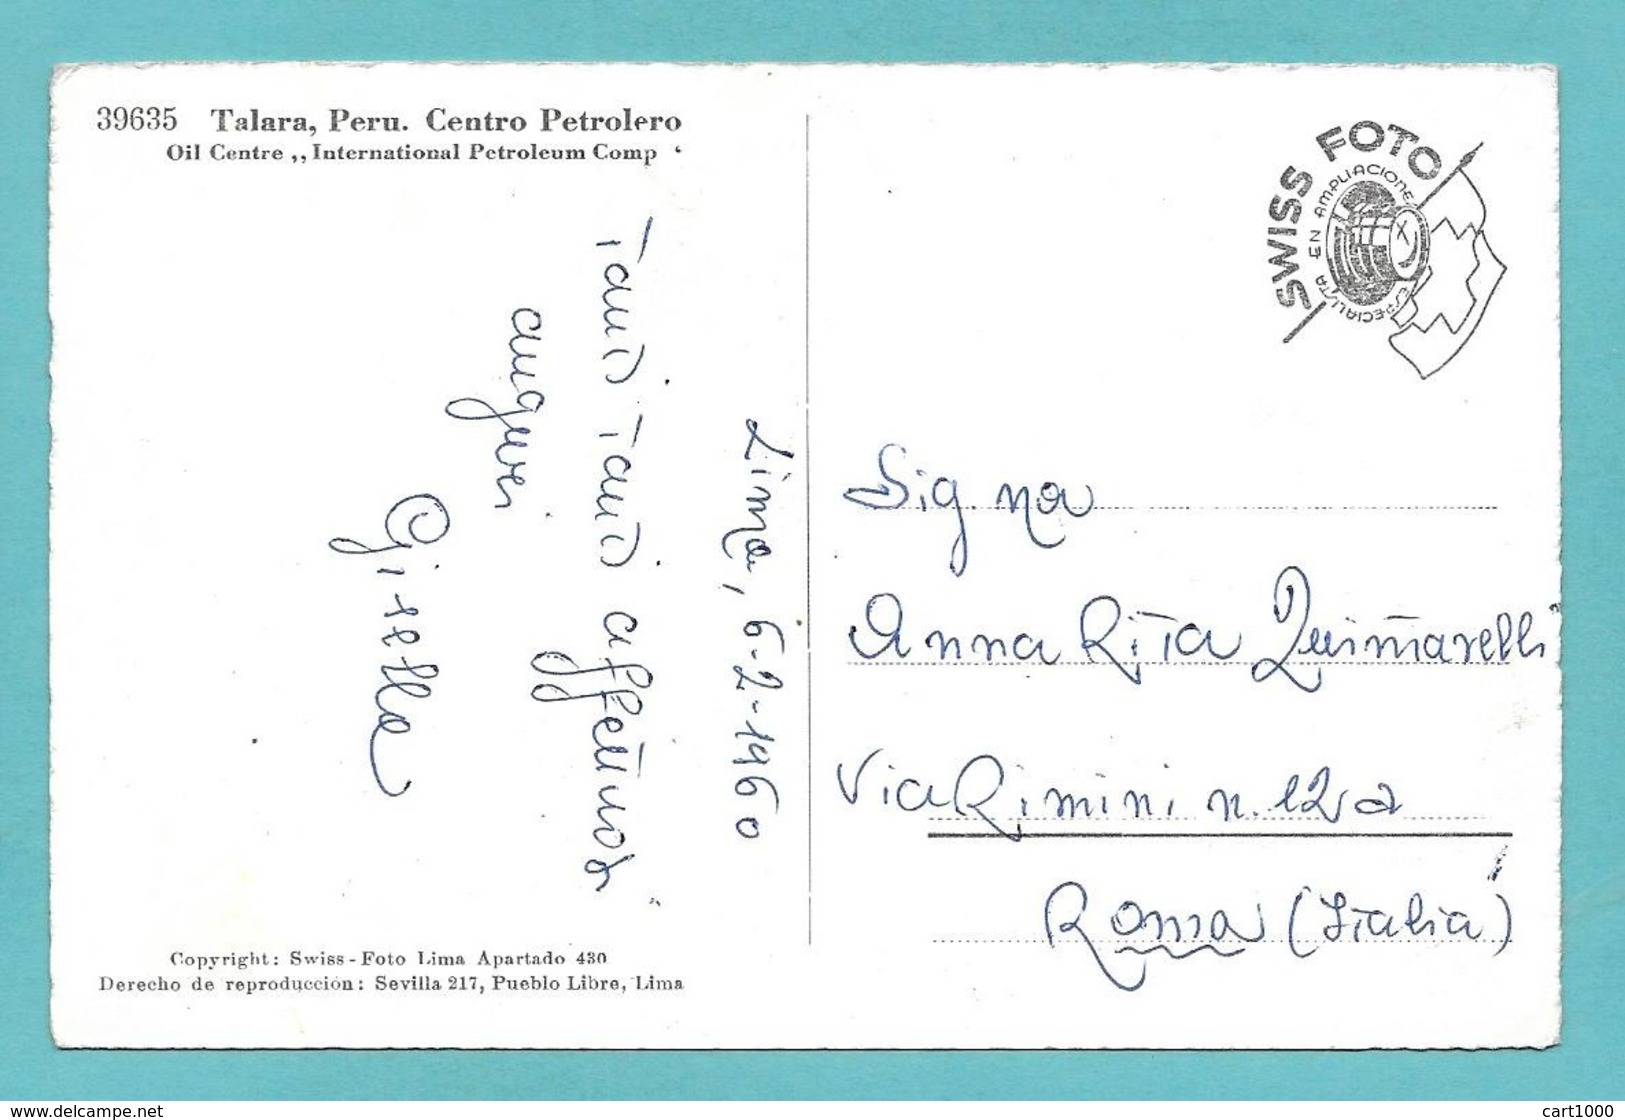 39635 Talara, Peru. Centro Petrolero
Oil Centre ,,International Petroleum Comp ‘
Lima, 6-2-1960
Tanti Tanti affettuosi
auguri
Gisella
Copyright: Swiss-Foto Lima Apartado 430
Derecho de reproducción: Sevilla 217, Pueblo Libre, Lima
SWISS FOTO
ESPECIALISTA EN AMPLIACIONE
Sig.na
Anna Rita
Via Rimini n. 12 a
Roma (Italia)
www.delcampe.net
cart1000